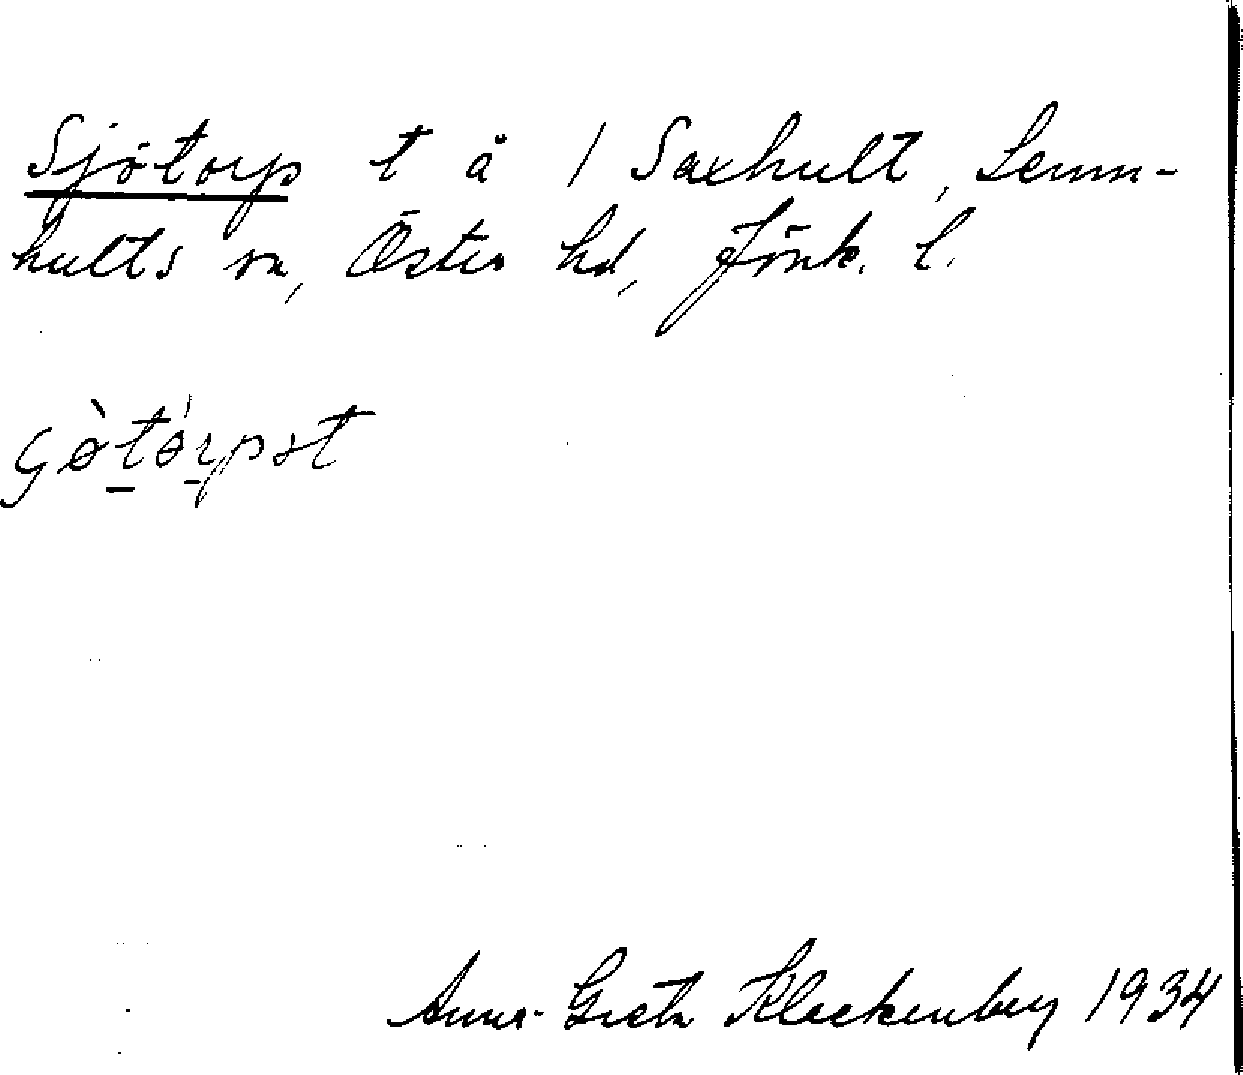 Sjötorp t å 1 Saxhult, Lemn-
hults sn, Öster hd, Jönk. l.
çø̀t̠ǿr̠pət
Anna-Greta Klockenberg 1934